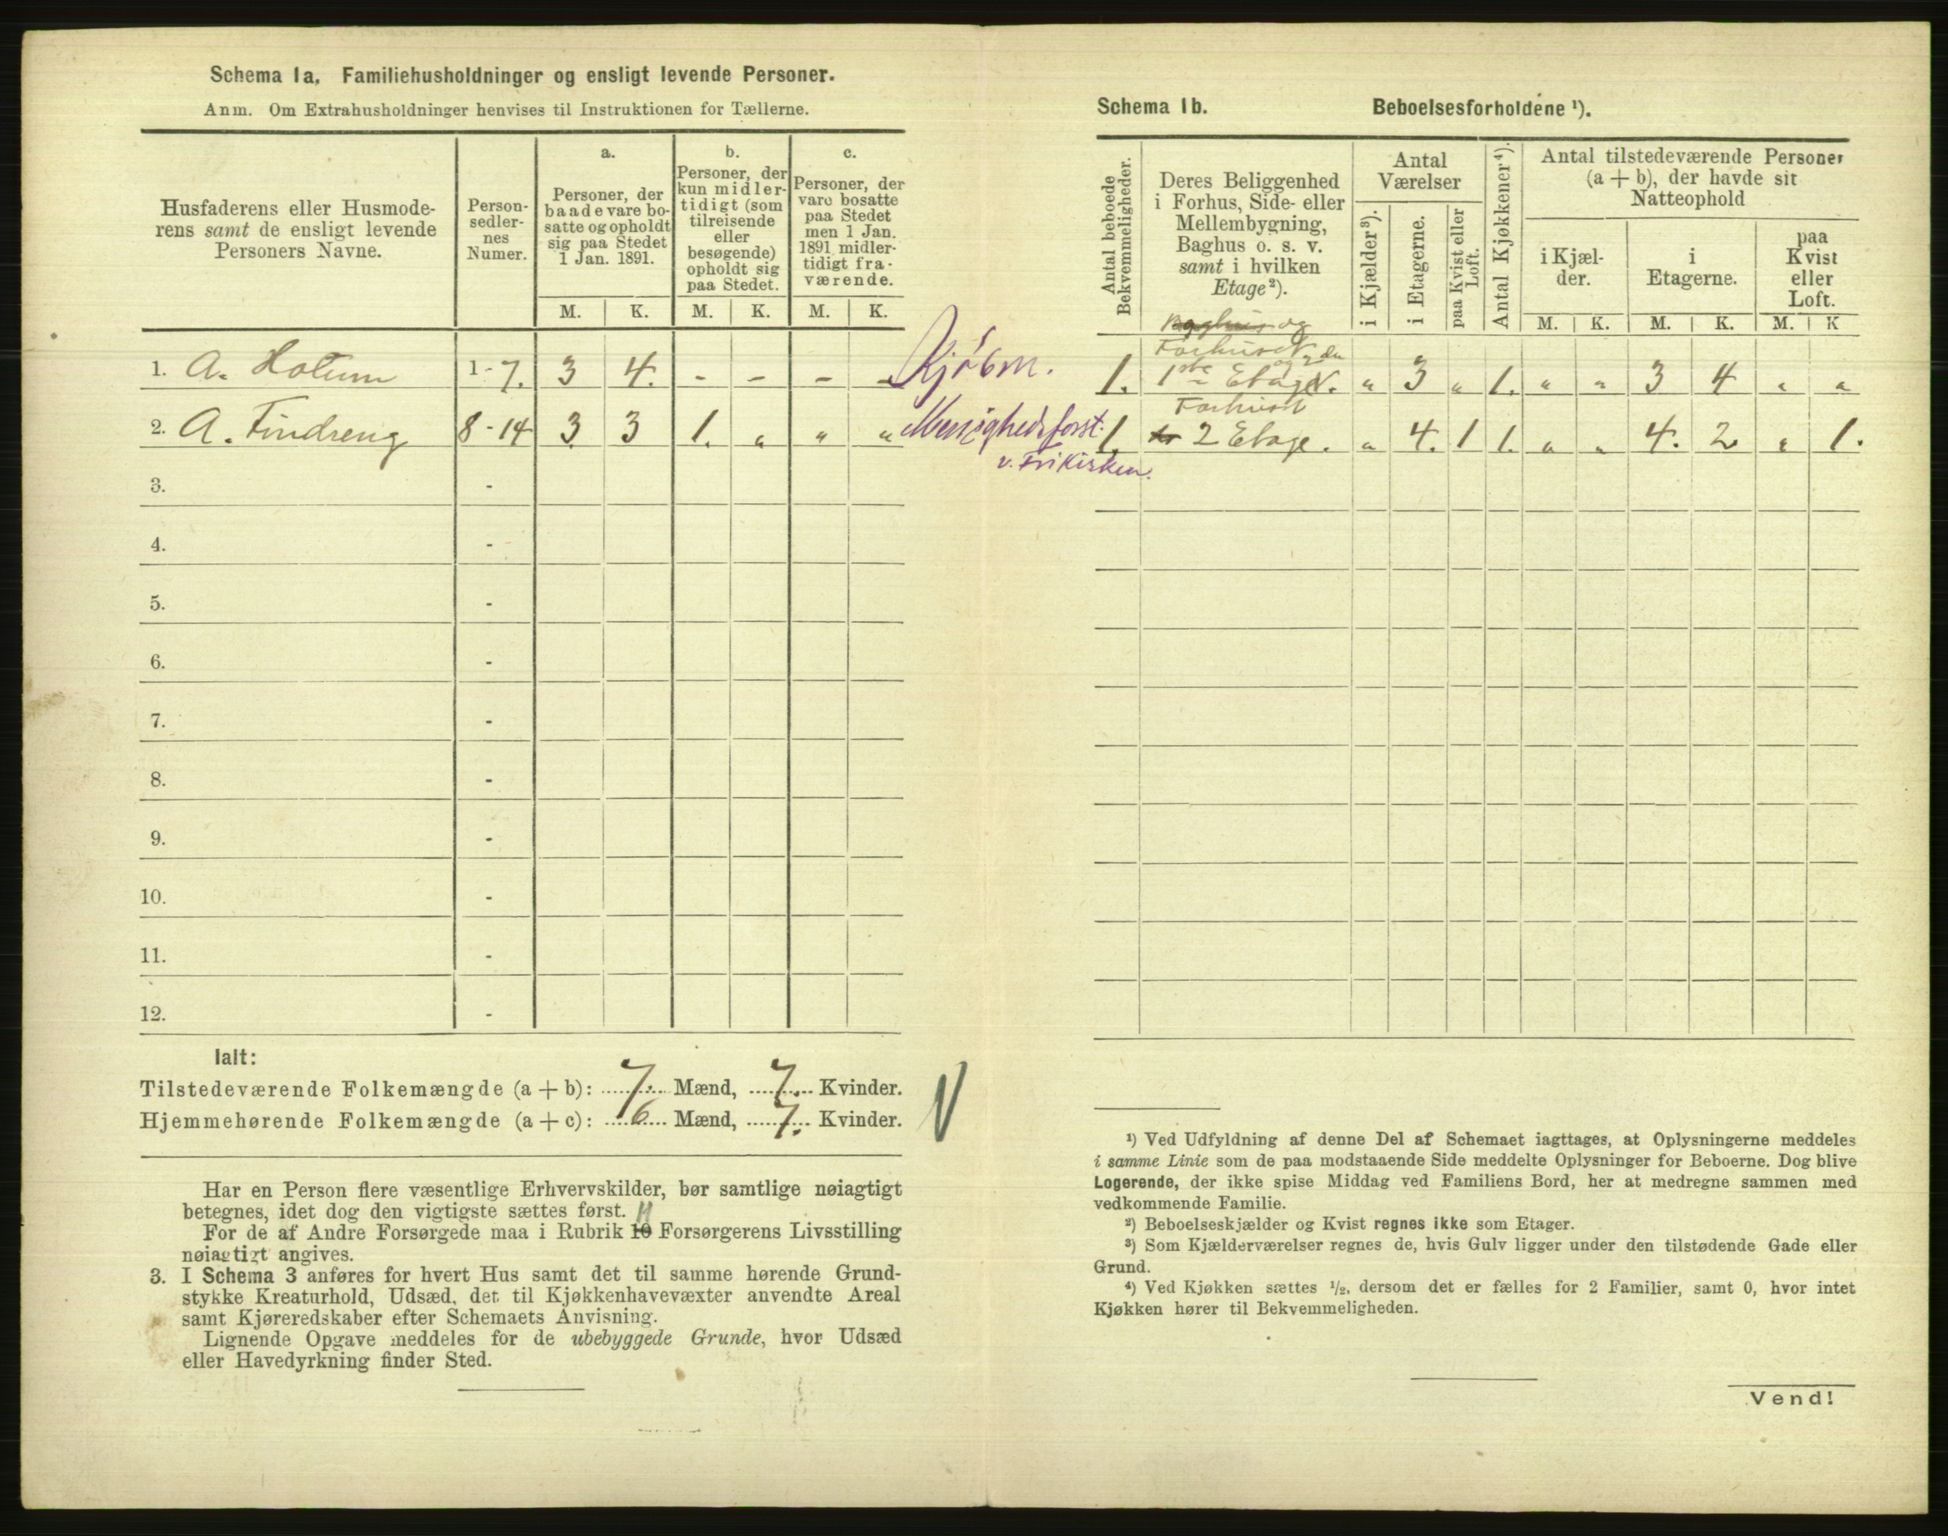 Schema 1a. Familiehusholdninger og ensligt levende Personer.
Anm. Om Extrahusholdninger henvises til Instruktionen for Tællerne.
Husfaderens eller Husmode-
rens samt de ensligt levende
Personers Navne.
Person-
sedler-
nes
Numer.
a.
Personer, der
baade vare bo-
satte og opholdt
sig paa Stedet
1 Jan. 1891.
b.
Personer, der
kun midler-
tidigt (som
tilreisende
eller
besøgende)
opholdt sig
paa Stedet.
c.
Personer, der
vare bosatte
paa Stedet
men 1 Jan.
1891 midler-
tidigt fra-
værende.
M. K. M. K. M. K.
1. A. Hotum 1-7. 3 4. - - - - Kjøbm.
2. A. Tindreng 8-14 3 3 1. „ „ „ Menighedsforst.
v. Frikirken.
3. -
4. -
5. -
6. -
7. -
8. -
9. -
10. -
11. -
12. -
Ialt:
Tilstedeværende Folkemængde (a + b): 7. Mænd, 7. Kvinder.
Hjemmehørende Folkemængde (a + c): 6 Mænd, 7. Kvinder.
Har en Person flere væsentlige Erhvervskilder, bør samtlige nøiagtigt
betegnes, idet dog den vigtigste sættes først.
11
For de af Andre Forsørgede maa i Rubrik 10 Forsørgerens Livsstilling
nøiagtigt angives.
3. I Schema 3 anføres for hvert Hus samt det til samme hørende Grund-
stykke Kreaturhold, Udsæd, det til Kjøkkenhavevæxter anvendte Areal
samt Kjøreredskaber efter Schemaets Anvisning.
Lignende Opgave meddeles for de ubebyggede Grunde, hvor Udsæd
eller Havedyrkning finder Sted.
Schema 1b. Beboelsesforholdene ¹).
Antal beboede
Bekvemmeligheder.
Deres Beliggenhed
i Forhus, Side- eller
Mellembygning,
Baghus o. s. v.
samt i hvilken
Etage²).
Antal
Værelser
i Kjælder³).
i Etagerne.
paa Kvist eller
Loft.
Antal Kjøkkener⁴).
Antal tilstedeværende Personer
(a + b), der havde sit
Natteophold
i Kjæl-
der.
i
Etagerne.
paa
Kvist
eller
Loft.
M. K. M. K. M. K
Baghus og
Forhuset
og 2den
1. 1ste Etage. „ 3 „ 1. „ „ 3 4 „ „
Forhuset
1. 2 Etage. „ 4. 1 1. „ „ 4. 2 „ 1.
¹) Ved Udfyldning af denne Del af Schemaet iagttages, at Oplysningerne meddeles
i samme Linie som de paa modstaaende Side meddelte Oplysninger for Beboerne. Dog blive
Logerende, der ikke spise Middag ved Familiens Bord, her at medregne sammen med
vedkommende Familie.
²) Beboelseskjælder og Kvist regnes ikke som Etager.
³) Som Kjælderværelser regnes de, hvis Gulv ligger under den tilstødende Gade eller
Grund.
⁴) Ved Kjøkken sættes ½, dersom det er fælles for 2 Familier, samt 0, hvor intet
Kjøkken hører til Bekvemmeligheden.
Vend!